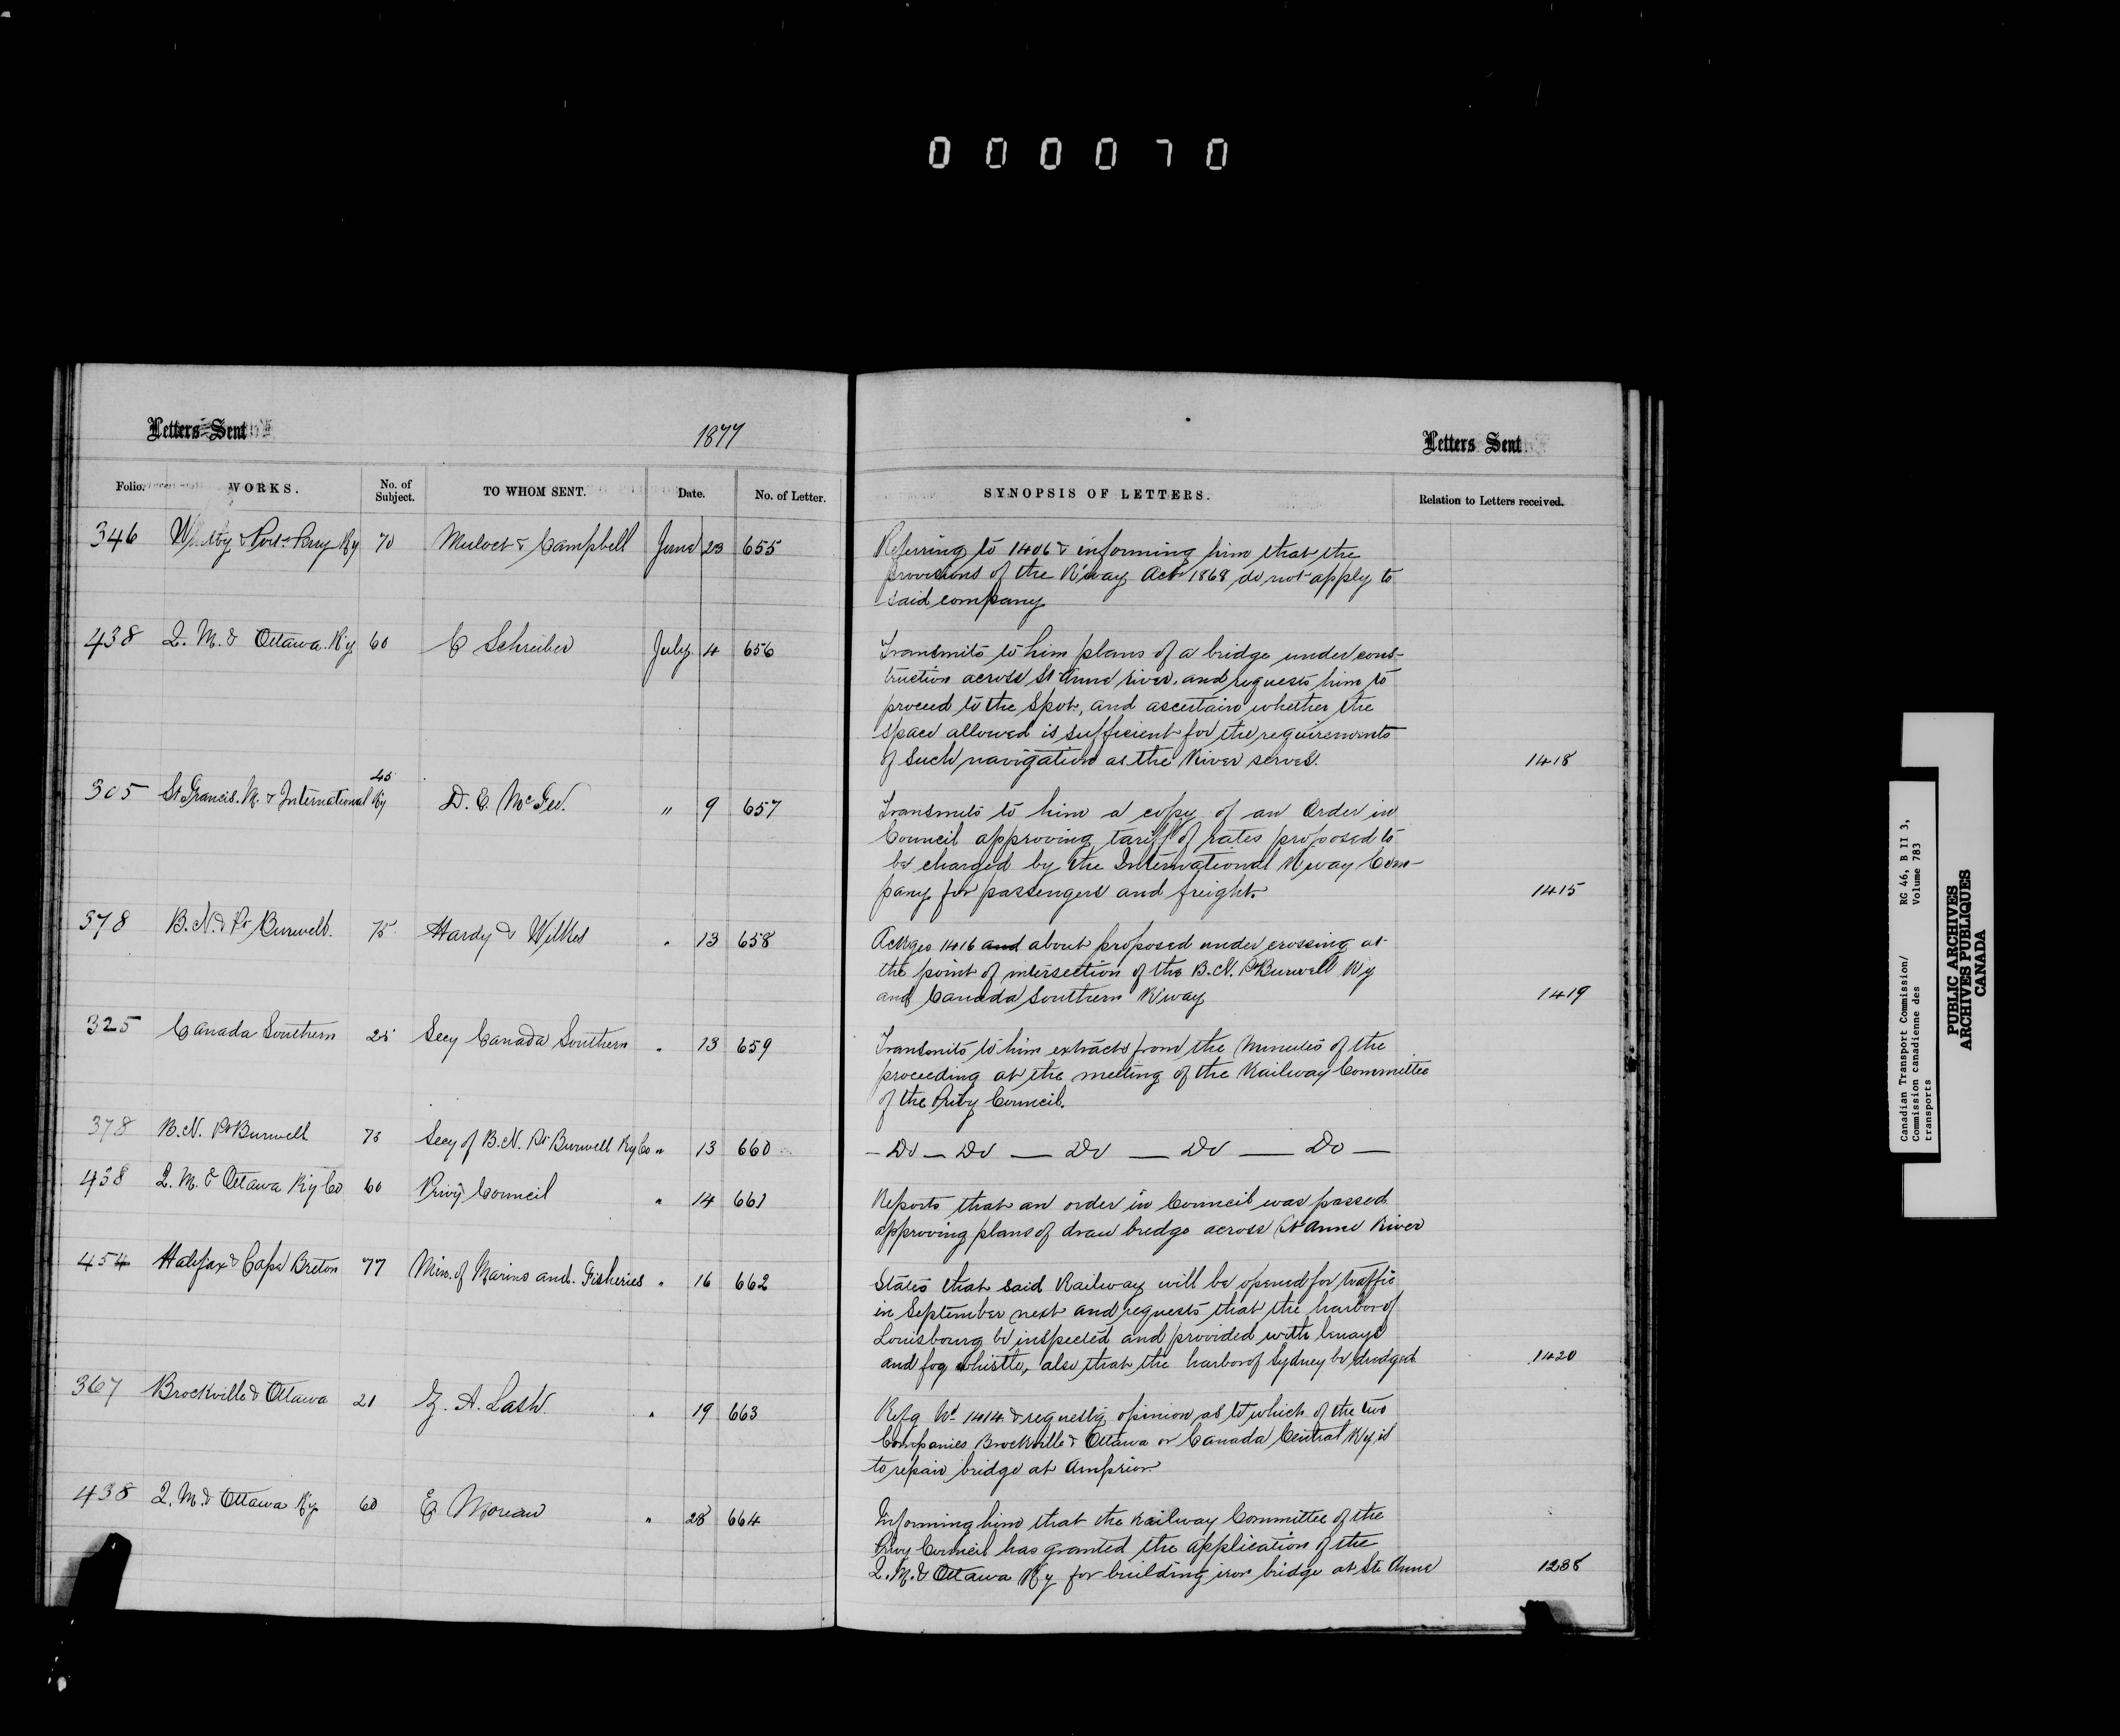 000070
Letters Sent
1877
Letters Sent
Folio. WORKS. No. of Subject. TO WHOM SENT. Date. No. of Letter. SYNOPSIS OF LETTERS. Relation to Letters received.
346 Whitby & Port Perry Ry 70 Mulock & Campbell June 23 655 Referring to 1406 & informing him that the
provisions of the R'way Act 1868 do not apply to
said company
438 Q. M. & Ottawa Ry 60 C Schreiber July 4 656 Transmits to him plans of a bridge under cons-
truction across St Anne river, and requests him to
proceed to the spot, and ascertain whether the
space allowed is sufficient for the requirements
of such navigation as the River serves. 1418
305 St Francis. M. & International Ry 45 D. E. McGee. " 9 657 Transmits to him a copy of an Order in
Council approving tariff of rates proposed to
be charged by the International R'way Com-
pany for passengers and freight. 1415
378 B. N. & Pt Burwell. 75 Hardy & Wilkes " 13 658 Ackges 1416 and about proposed under crossing at
the point of intersection of the B. N. Pt Burwell Ry
and Canada Southern R'way 1419
325 Canada Southern 25 Secy Canada Southern " 13 659 Transmits to him extracts from the Minutes of the
proceeding at the meeting of the Railway Committee
of the Privy Council.
378 B. N. Pt Burwell 75 Secy of B. N. Pt Burwell Ry Co " 13 660 - Do — Do — Do — Do — Do —
438 Q. M. & Ottawa Ry Co 60 Privy Council " 14 661 Reports that an order in Council was passed
approving plans of draw bridge across St Anne River
454 Halifax & Cape Breton 77 Min. of Marine and Fisheries " 16 662 States that said Railway will be opened for traffic
in September next and requests that the harbor of
Louisbourg be inspected and provided with bouys
and fog whistle, also that the harbor of Sydney be dredged 1420
367 Brockville & Ottawa 21 Z. A. Lash. " 19 663 Refg No 1414 & requestg opinion as to which of the two
Companies Brockville & Ottawa or Canada Central Ry is
to repair bridge at Arnprior.
438 Q. M. & Ottawa Ry 60 E Moreau " 28 664 Informing him that the Railway Committee of the
Privy Council has granted the application of the
Q. M. & Ottawa Ry for building iron bridge at Ste Anne 1238
Canadian Transport Commission/ RG 46, B II 3,
Commission canadienne des Volume 783
transports
PUBLIC ARCHIVES
ARCHIVES PUBLIQUES
CANADA